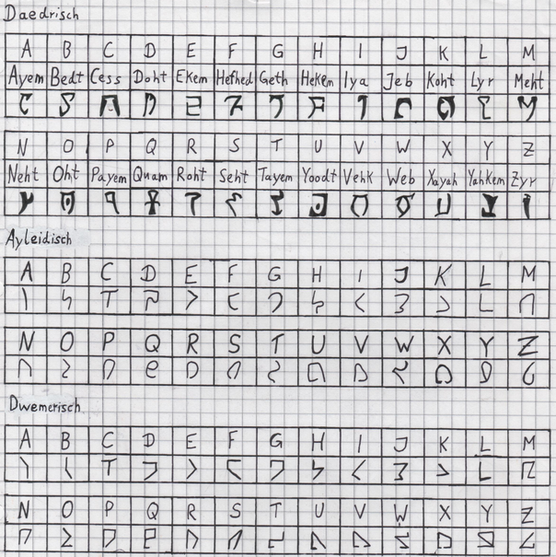 Daedrisch
A B C D E F G H I J K L M
Ayem Bedt Cess Doht Ekem Hefhed Geth Hekem Iya Jeb Koht Lyr Meht
N O P Q R S T U V W X Y Z
Neht Oht Payem Quam Roht Seht Tayem Yoodt Vehk Web Xayah Yahkem Zyr
Ayleidisch
A B C D E F G H I J K L M
N O P Q R S T U V W X Y Z
Dwemerisch
A B C D E F G H I J K L M
N O P Q R S T U V W X Y Z